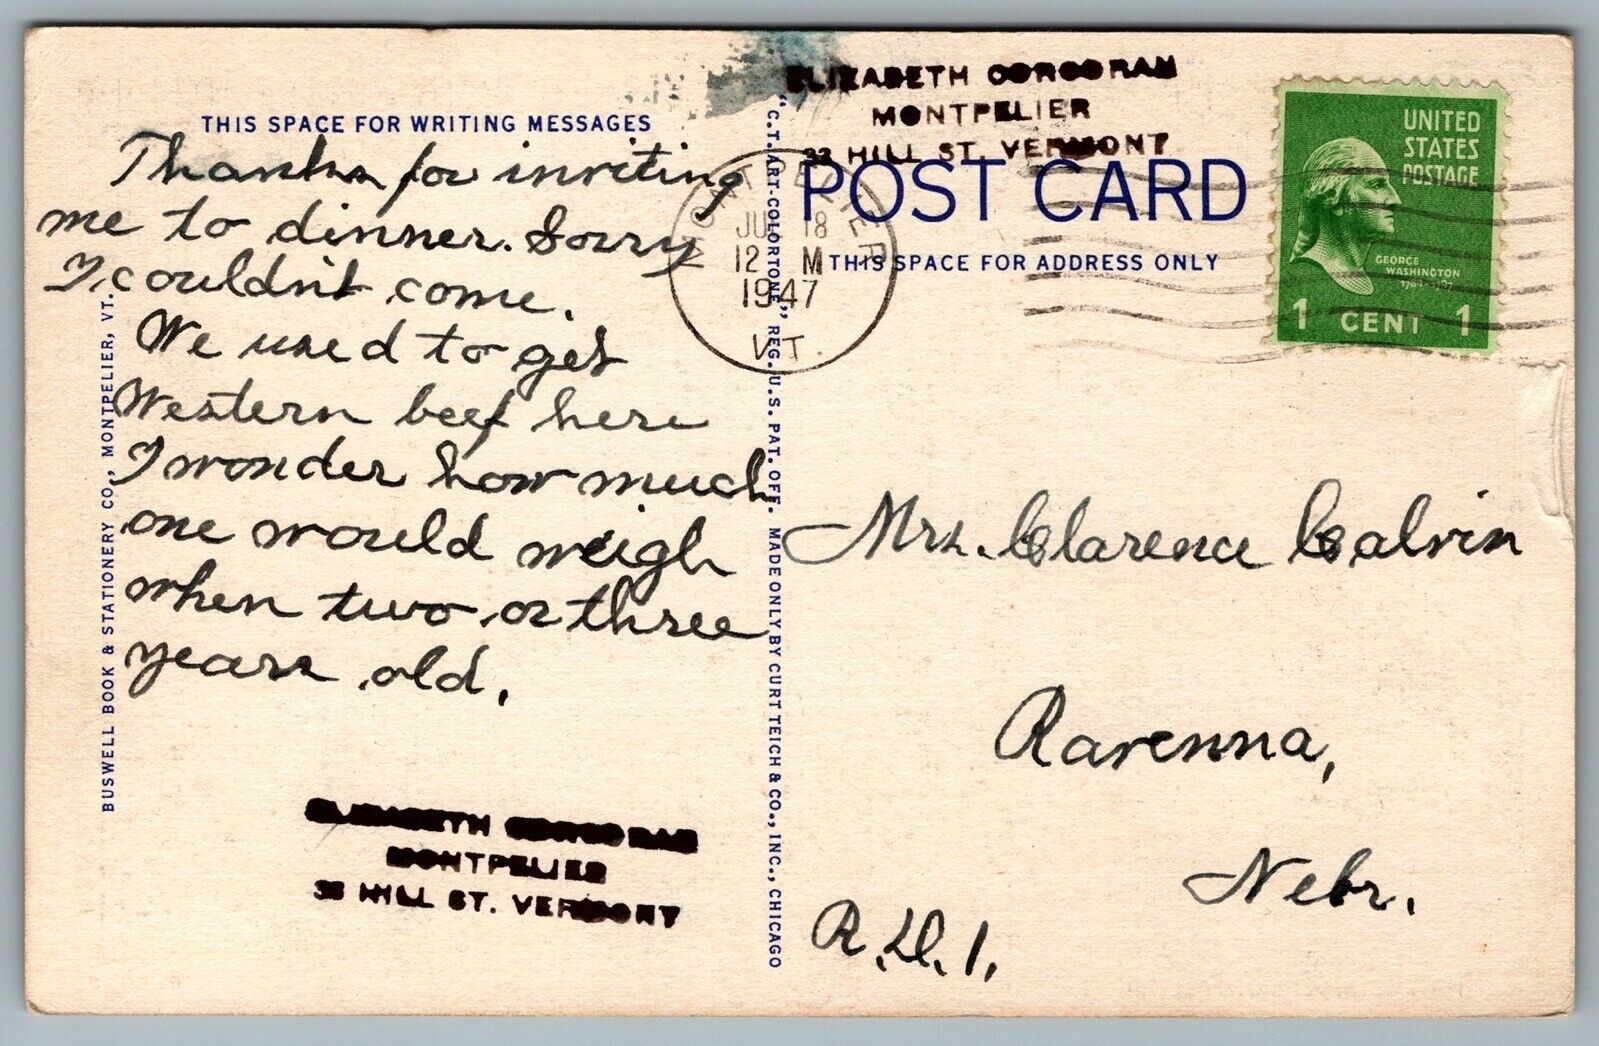 THIS SPACE FOR WRITING MESSAGES
Thanks for inviting
me to dinner. Sorry
I couldn't come.
We used to get
Western beef here
I wonder how much
one would weigh
when two or three
years old.
ELIZABETH CORCORAN
MONTPELIER
HILL ST. VERMONT
BUSWELL BOOK & STATIONERY CO., MONTPELIER, VT.
"C.T. ART-COLORTONE" REG. U.S. PAT. OFF. MADE ONLY BY CURT TEICH & CO., INC., CHICAGO
MONTPELIER
18
12 M
1947
VT.
ELIZABETH CORCORAN
MONTPELIER
HILL ST. VERMONT
POST CARD
THIS SPACE FOR ADDRESS ONLY
UNITED
STATES
POSTAGE
GEORGE
WASHINGTON
1 CENT 1
Mrs. Clarence Calvin
Ravenna,
Nebr.
R.D.1.